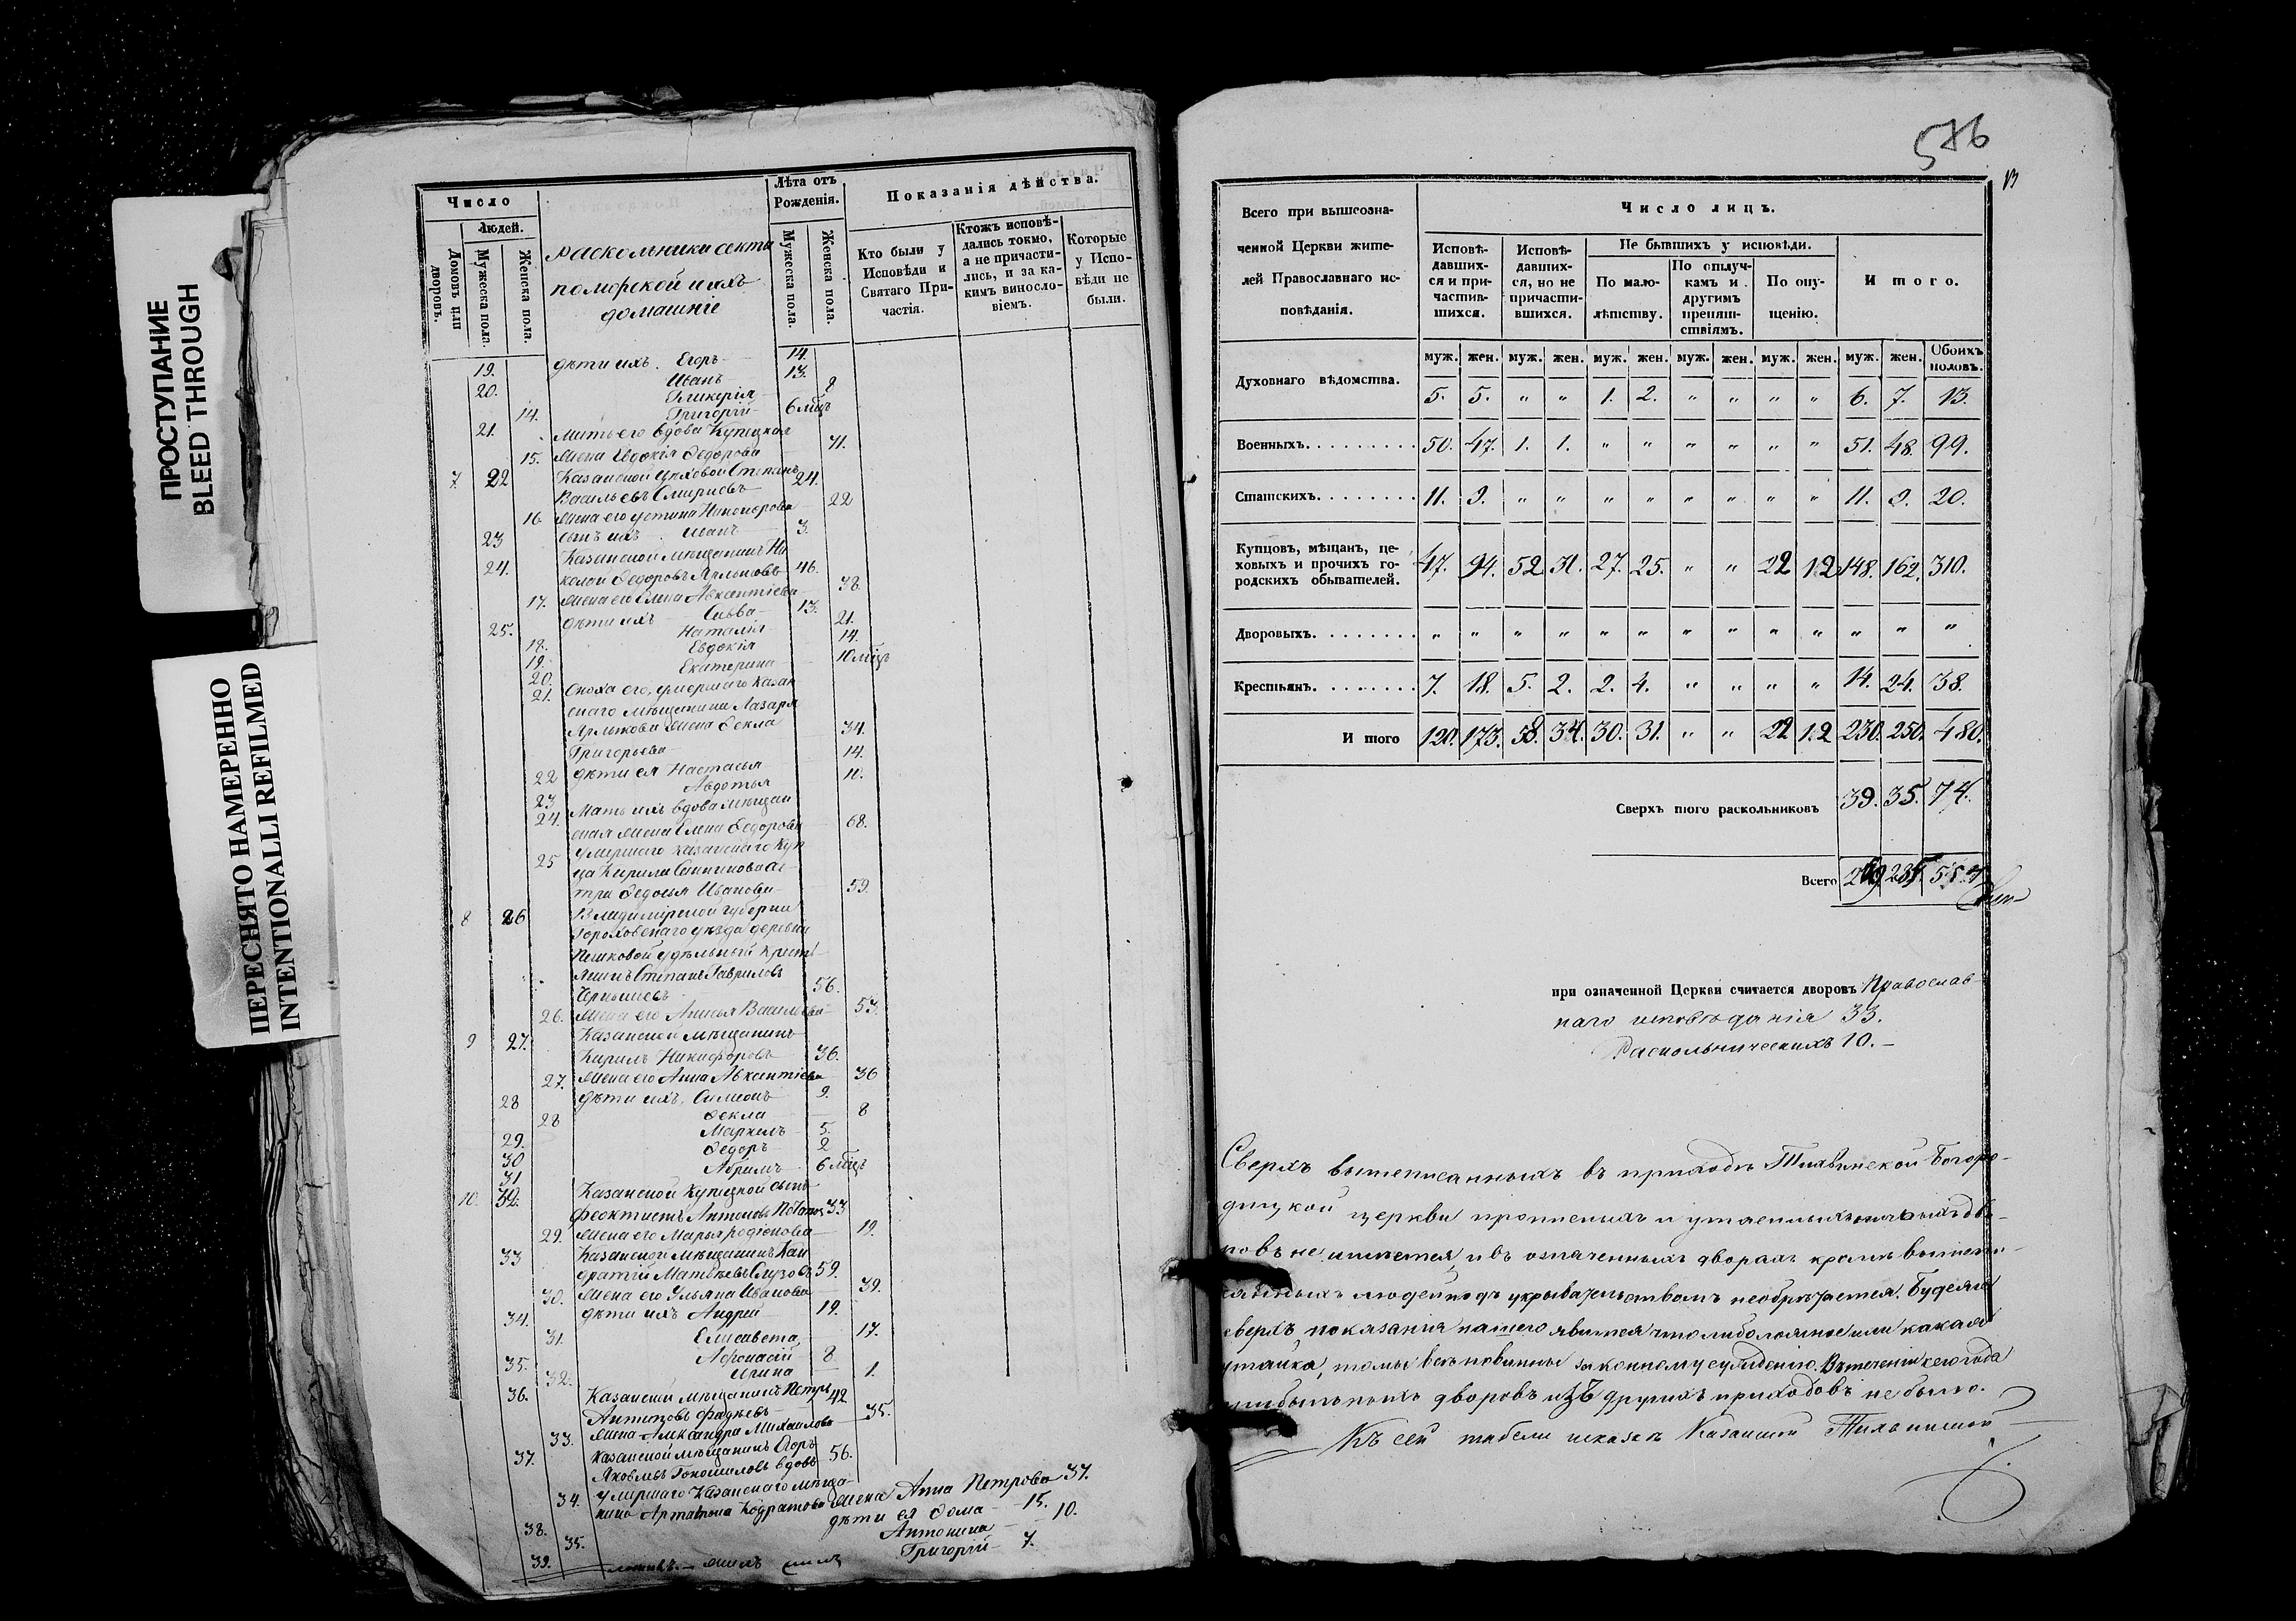 ПРОСТУПАНИЕ
BLEED THROUGH
ПЕРЕСНЯТО НАМЕРЕННО
INTENTIONALLI REFILMED
Число
Людей.
Домовъ или дворовъ.
Мужеска пола.
Женска пола.
Раскольники секты
поморской и ихъ
домашніе
Лѣта отъ Рожденія.
Мужеска пола.
Женска пола.
Показанія дѣйства.
Кто были у Исповѣди и Святаго Причастія.
Ктожъ исповѣдались токмо, а не причастились, и за какимъ винословіемъ.
Которые у Исповѣди не были.
19. дѣти ихъ. Егоръ 14.
20. Иванъ 13.
14. Гликерія 9
21. Григорій 6 мѣц
мать его вдова Купецкая
15. жена Евдокія Федорова 71.
7 22 Казанской Цеховой Степанъ
Васильевъ Смирновъ 24.
16. жена его Устина Никонорова 22
23 сынъ ихъ Иванъ 3.
24. Казанской мѣщанинъ Ни
колай Федоровъ 46.
17. жена его Елена Авксентіева 38.
25. дѣти ихъ Савва 13.
18. Наталія 21.
19. Евдокія 14.
20. Екатерина 10 мѣцъ
21. Сноха его, умершаго Казан
скаго мѣщанина Лазаря
жена Фекла
Григорьева 34.
22 дѣти ея Настасья 14.
23 Авдотья 11.
24. Мать ихъ вдова мѣщан
ская жена Елена Федорова 68.
25 Умершаго казанскаго Куп
ца Кирила
Федосья Иванова 59.
8 26 Владимірской губерніи
Гороховскаго уѣзда деревни
удѣльный Кресть
янинъ Степанъ Гавриловъ
Чернышевъ 56.
26. жена его Анисья Васильева 53.
9 27. Казанской мѣщанинъ
Кирилъ Никифоровъ 36.
27. жена его Анна Авксентіева 36
28 дѣти ихъ. Симеонъ 9.
28 Фекла 8
29. Маркелъ 5.
30 Федоръ 2
31 Абрамъ 6 мѣцъ
10. 32. Казанской Купецкой сынъ
Феоктистъ Антоновъ 33
29. жена его Марья Родіонова 19.
33 Казанской мѣщанинъ Кон
дратій Матвѣевъ 59.
30. жена его Ульяна Иванова 39.
34. дѣти ихъ Андрей 19.
31. Елисавета, 17.
35. Афонасій 8
32. Ирина 1.
36. Казанской мѣщанинъ Петръ
Антиповъ Фадѣевъ 42
33. жена Александра Михаилова 35.
37. Казанской мѣщанинъ Егоръ
Яковлевъ вдовъ 56.
34. Умершаго Казанскаго мѣща
нина жена Анна Петрова 37.
38. дѣти ея Фома 15.
35. Антонина 10.
39. Григорій 7.
576
13
Всего при вышеозначенной Церкви жителей Православнаго исповѣданія.
Число лицъ.
Исповѣдавшихся и причастившихся.
Исповѣдавшихся, но не причастившихся.
Не бывшихъ у исповѣди.
По малолѣтству.
По отлучкамъ и другимъ препятствіямъ.
По опущенію.
Итого.
муж. жен. муж. жен. муж. жен. муж. жен. муж. жен. муж. жен. Обоихъ половъ.
Духовнаго вѣдомства. 5. 5. " " 1. 2. " " " " 6. 7. 13.
Военныхъ. 50. 47. 1. 1. " " " " " " 51. 48. 99.
Статскихъ. 11. 9. " " " " " " " " 11. 9. 20.
Купцовъ, мѣщанъ, цеховыхъ и прочихъ городскихъ обывателей. 47. 94. 52 31. 27. 25. " " 22 12 148. 162. 310.
Дворовыхъ. " " " " " " " " " " " " "
Крестьянъ. 7. 18. 5. 2. 2. 4. " " " " 14. 24. 38.
Итого 120. 173. 58. 34. 30. 31. " " 22 12 230. 250. 480.
Сверхъ того раскольниковъ 39. 35. 74.
Всего
при означенной Церкви считается дворовъ Православ-
наго исповѣданія 33.
Раскольническихъ 10.
Сверхъ вышеписанныхъ въ приходѣ Тихвинской Богоро-
дицкой церкви прописныхъ и утаенныхъ дво-
ровъ не имѣется, и въ означенныхъ дворахъ кромѣ вышепи-
санныхъ людей подъ укрывательствомъ необрѣтается. Буде же
сверхъ показанія нашего явится что либо ложное или какая
утайка, то мы всѣ повинны законному сужденію. Въ теченіи сего года
прибылыхъ дворовъ изъ другихъ приходовъ не было.
Къ сей табели Казанской Тихвинской